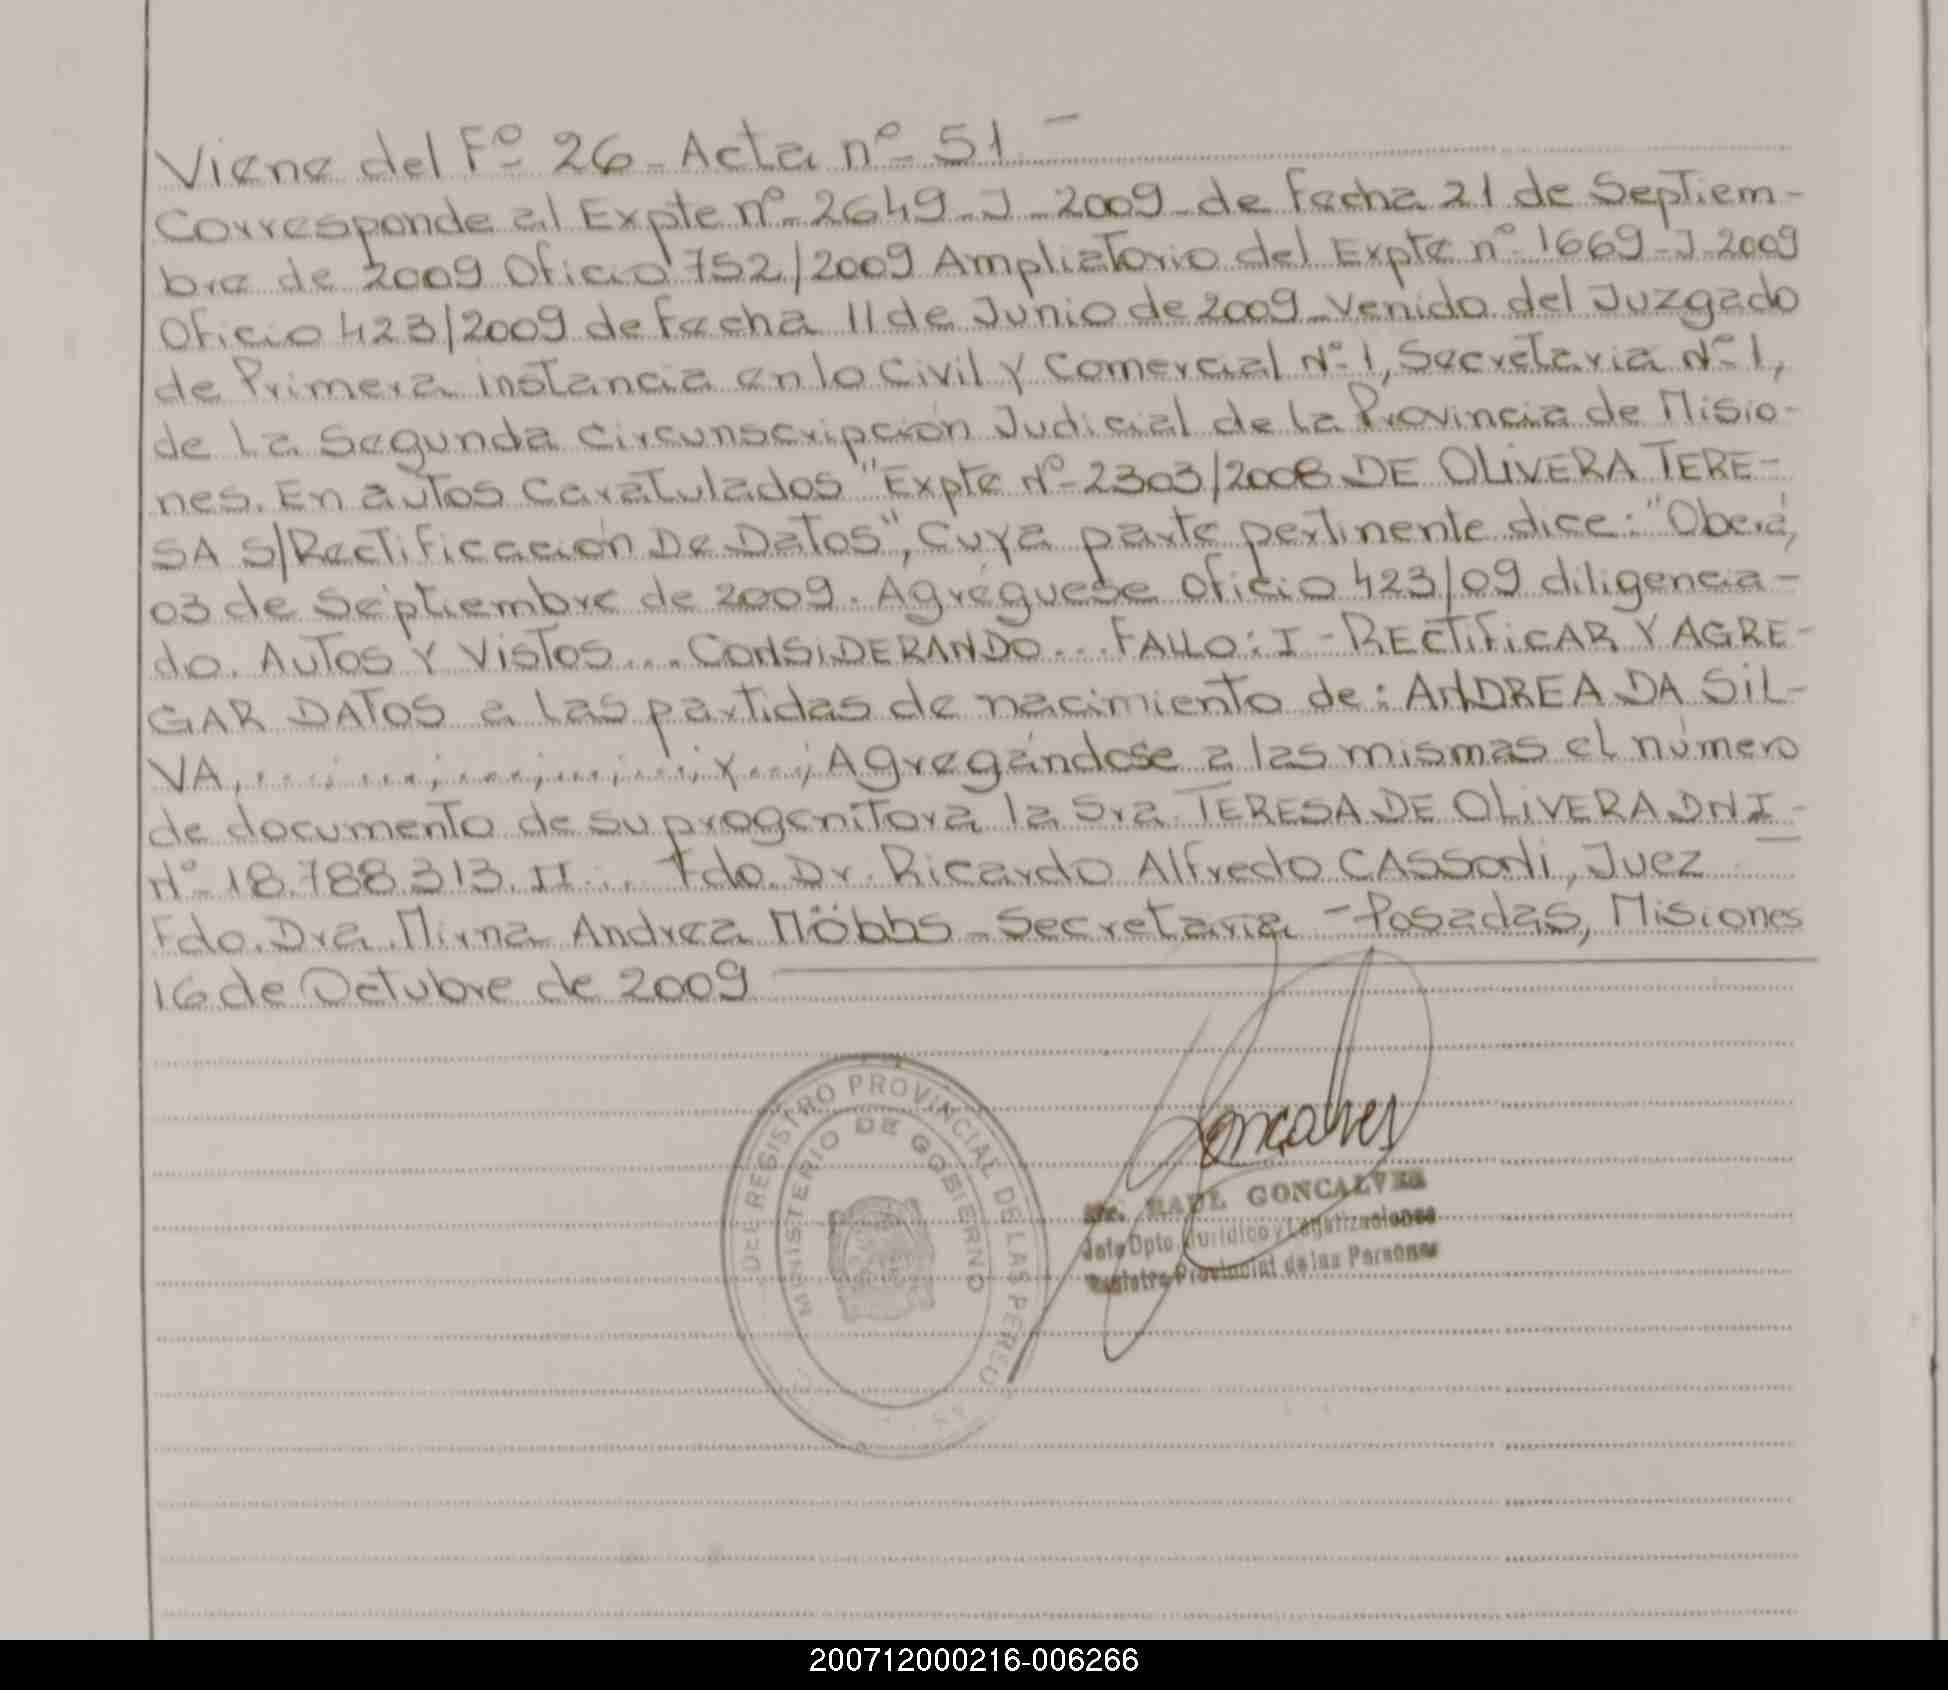 Viene del Fº 26 - Acta nº 51 -
Corresponde al Expte nº 2649-J-2009-de Fecha 21 de Septiem-
bre de 2009 Oficio 752/2009 Ampliatorio del Expte nº 1669-J-2009
Oficio 423/2009 de Fecha 11 de Junio de 2009-venido del Juzgado
de Primera instancia en lo Civil y Comercial Nº 1, Secretaria Nº 1,
de La Segunda Circunscripción Judicial de la Provincia de Misio-
nes. En autos Caratulados "Expte Nº-2303/2008 DE OLIVERA TERE-
SA S/Rectificación De Datos", Cuya parte pertinente dice: "Oberá,
03 de Séptiembre de 2009. Agréguese oficio 423/09 diligencia-
do. Autos Y Vistos... CONSIDERANDO... FALLO: I - RECTIFICAR Y AGRE-
GAR DATOS a las partidas de nacimiento de: ANDREA DA SIL-
VA, ....; ....; ....; ....; ....; y ...; Agregándose a las mismas el número
de documento de su progenitora la Sra. TERESA DE OLIVERA DNI -
Nº-18.788.313. II... Fdo. Dr. Ricardo Alfredo CASSONI, Juez
Fdo. Dra. Mirna Andrea Möbbs - Secretaria - Posadas, Misiones
16 de Octubre de 2009
DEL REGISTRO PROVINCIAL DE LAS PERSO
MINISTERIO DE GOBIERNO
Goncalves
RAUL GONCALVES
Jefe Dpto. Jurídico y Legalizaciones
Registro Provincial de las Personas
200712000216-006266